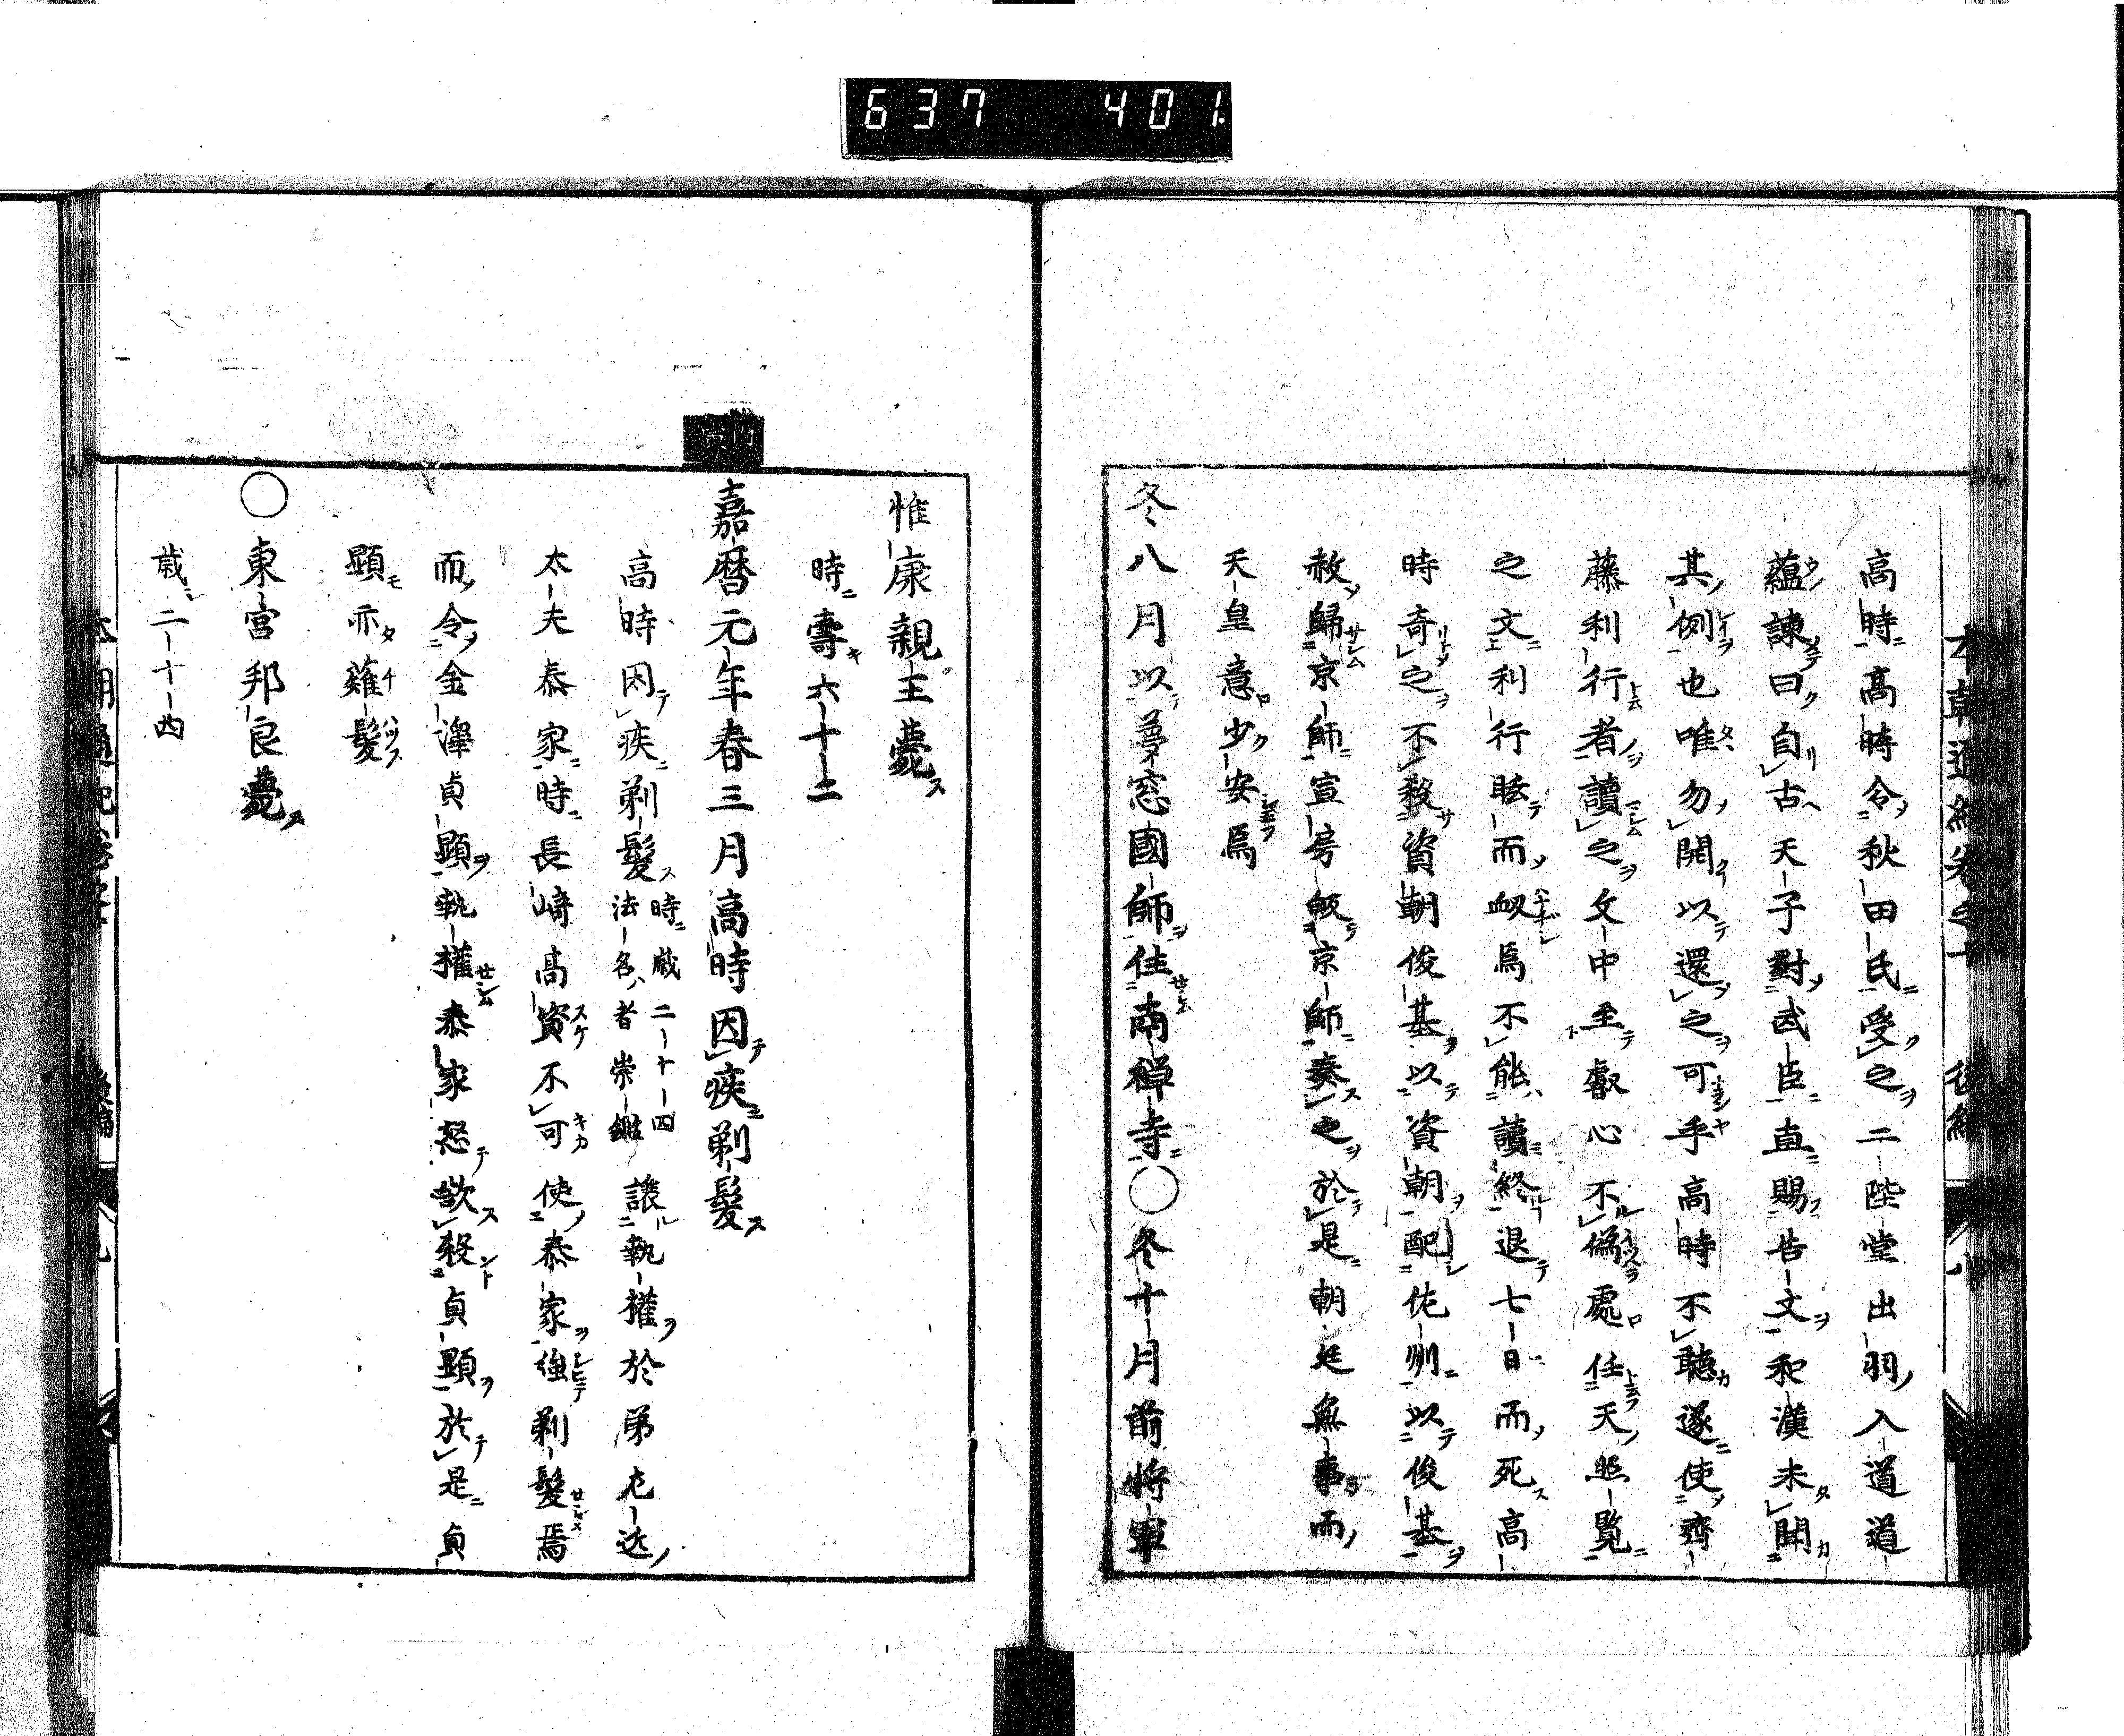 637 401.
高時高時令秋田氏受之二陛堂出羽入道道
蘊諫曰自古天子對武臣直賜告文和漢未聞
其例也唯勿開以還之可乎高時不聽遂使齊
藤利行者讀之文中至叡心不偽處任天照覧
之文利行眩而衂焉不能讀終退七日而死高
時奇之不殺資朝俊基以資朝配佐州以俊基
赦歸京師宣房皈京師奏之於是朝廷無事而
天皇意少安焉
冬八月以夢窓國師住南禅寺○冬十月前将軍
惟康親王薨
時壽六十二
嘉暦元年春三月高時因疾剃髮
高時因疾剃髮時歳二十四法名者崇鑑譲執權於弟左近
太夫泰家時長崎高資不可使泰家強剃髮焉
而令金澤貞顕執權泰家怒欲殺貞顕於是貞
顕亦薙髮
○東宮邦良薨
歳二十四